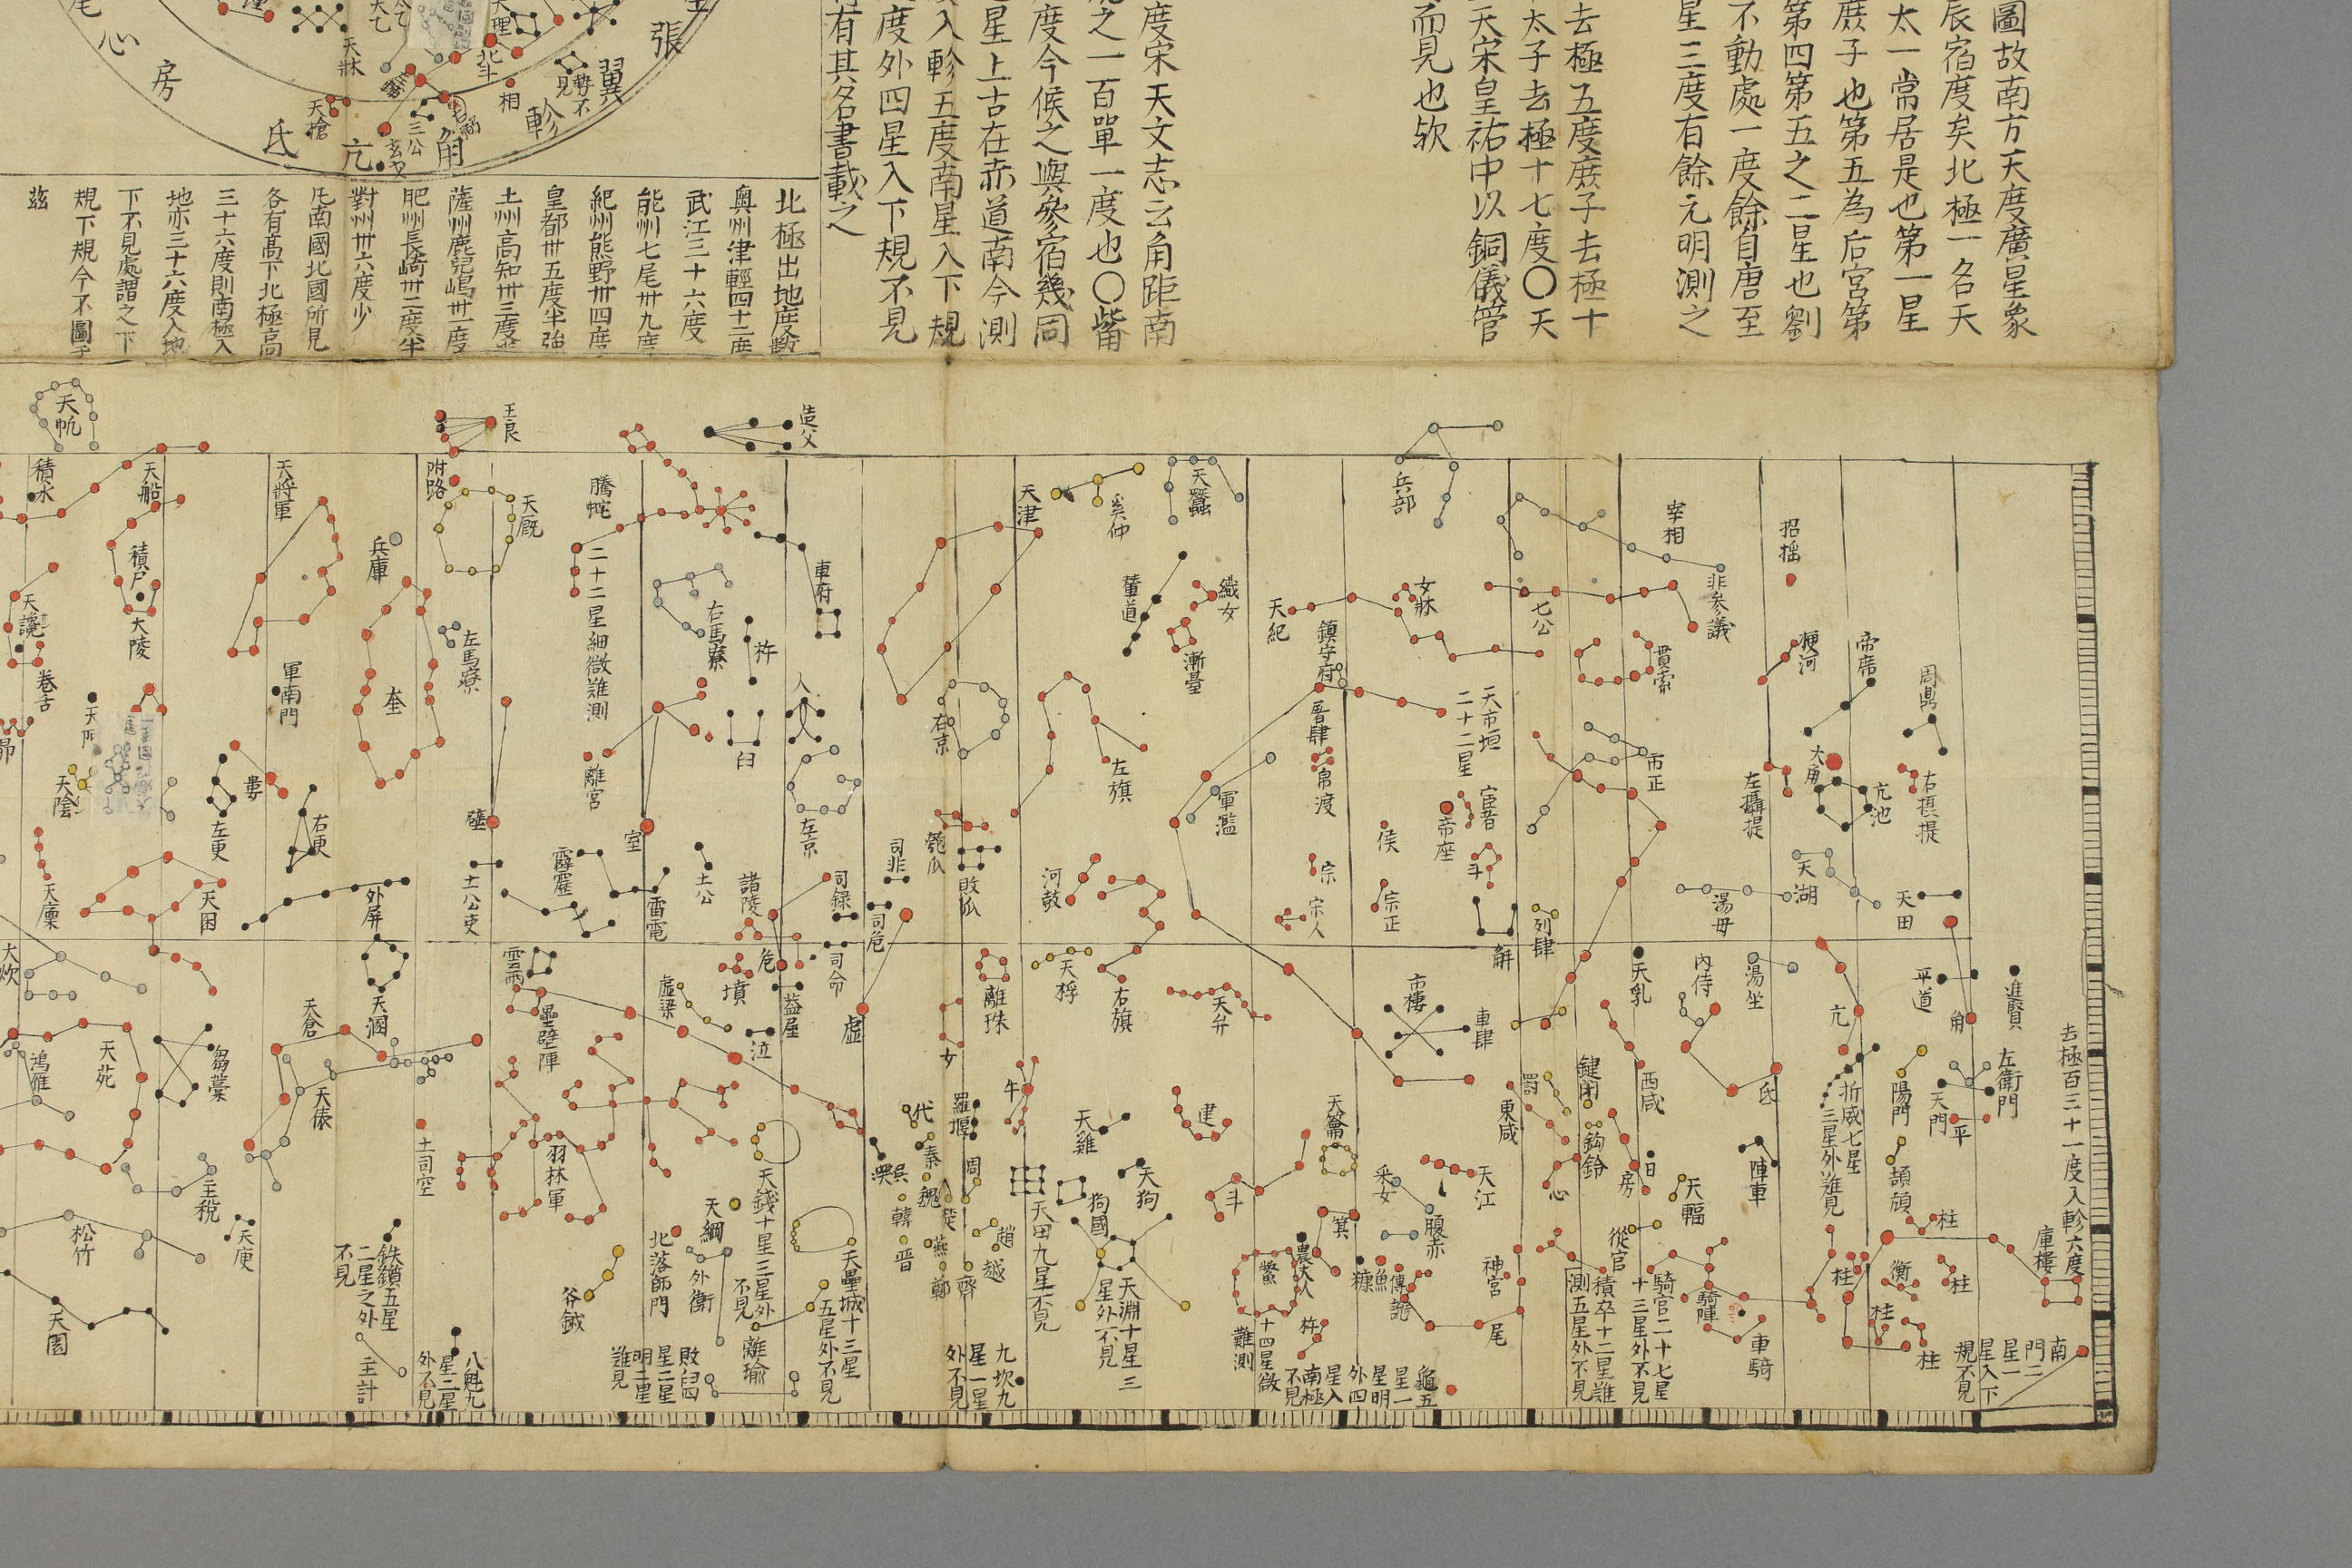 圖故南方天度廣星象
辰宿度矣北極一名天
太一常居是也第一星
庶子也第五為后宮第
第四第五之二星也劉
不動處一度餘自唐至
星三度有餘元明測之
去極五度庶子去極十
太子去極十七度〇天
天宋皇祐中以銅儀管
而見也欤
度宋天文志云角距南
之一百單一度也〇觜
度今候之與參宿幾同
星上古在赤道南今測
入軫五度南星入下規
度外四星入下規不見
有其名書載之
北極出地度數
奥州津輕四十二度
武江三十六度
能州七尾卅九度
紀州熊野卅四度
皇都卅五度半強
土州高知卅三度
薩州鹿兒嶋卅一度
肥州長崎卅二度半
對州卅六度少
凡南國北國所見
各有髙下北極高
三十六度則南極入
地亦三十六度入地
下不見處謂之下
規下規今不圖
茲
張
翼
軫
角
亢
氐
房
心
尾
天理
北斗
相
三公
玄戈
天槍
天牀
太乙
勢不見
天帆
王良
造父
積水
天船
天將軍
附路
天厩
騰蛇
天津
奚仲
天蠶
兵部
宰相
招搖
積尸
大陵
兵庫
二十二星細微難測
車府
輦道
織女
天紀
女牀
七公
非參議
天讒
卷舌
軍南門
奎
左馬寮
右馬寮
杵
人
漸臺
鎮守府
貫索
梗河
帝席
周鼎
昴
天阿
天陰
婁
左更
右更
離宮
臼
右京
左旗
晋肆
天市垣
二十二星
市正
大角
亢池
左攝提
右摂提
壁
室
左京
司非
瓠瓜
軍濫
帛渡
帝座
宦者
侯
斗
天廩
天囷
外屏
土公吏
霹靂
雷電
土公
諸陵
司録
司危
敗瓜
河鼓
宗
宗人
宗正
列肆
湯母
天湖
天田
天溷
雲雨
壘壁陣
虚梁
墳
危
司命
蓋屋
泣
虚
離珠
女
天桴
右旗
天弁
市樓
車肆
天乳
內侍
湯坐
亢
平道
角
進賢
大炊
鴻雁
天苑
芻藁
天倉
天俵
土司空
羽林軍
天錢十星三星外
不見
代
秦
羅堰
牛
天雞
建
天籥
罰
東咸
鍵閉
西咸
鈎鈐
氐
折威七星
三星外難見
陽門
天門
平
左衛門
吳
魏
韓
晋
楚
燕
鄭
周
趙
越
齊
天田九星不見
狗國
天狗
斗
采女
天江
心
房
日
天輻
從官
陣車
頡頏
柱
衡
庫樓
去極百三十一度入軫六度
松竹
主税
天庾
天園
鉄鑕五星
二星之外
不見
主計
八魁九
星二星
外不見
北落師門
天綱
外衛
敗臼四
星二星
明二星
難見
離瑜
天壘城十三星
五星外不見
九坎九
星一星
外不見
天淵十星三
星外不見
鱉
十四星微
難測
農丈人
箕
糠
魚
傅說
杵
腹赤
神宮
尾
龜五
星一
星明
外四
星入
南極
不見
積卒十二星難
測五星外不見
騎官二十七星
十三星外不見
騎陣
車騎
柱
柱
柱
柱
南
門二
星一
星入下
規不見